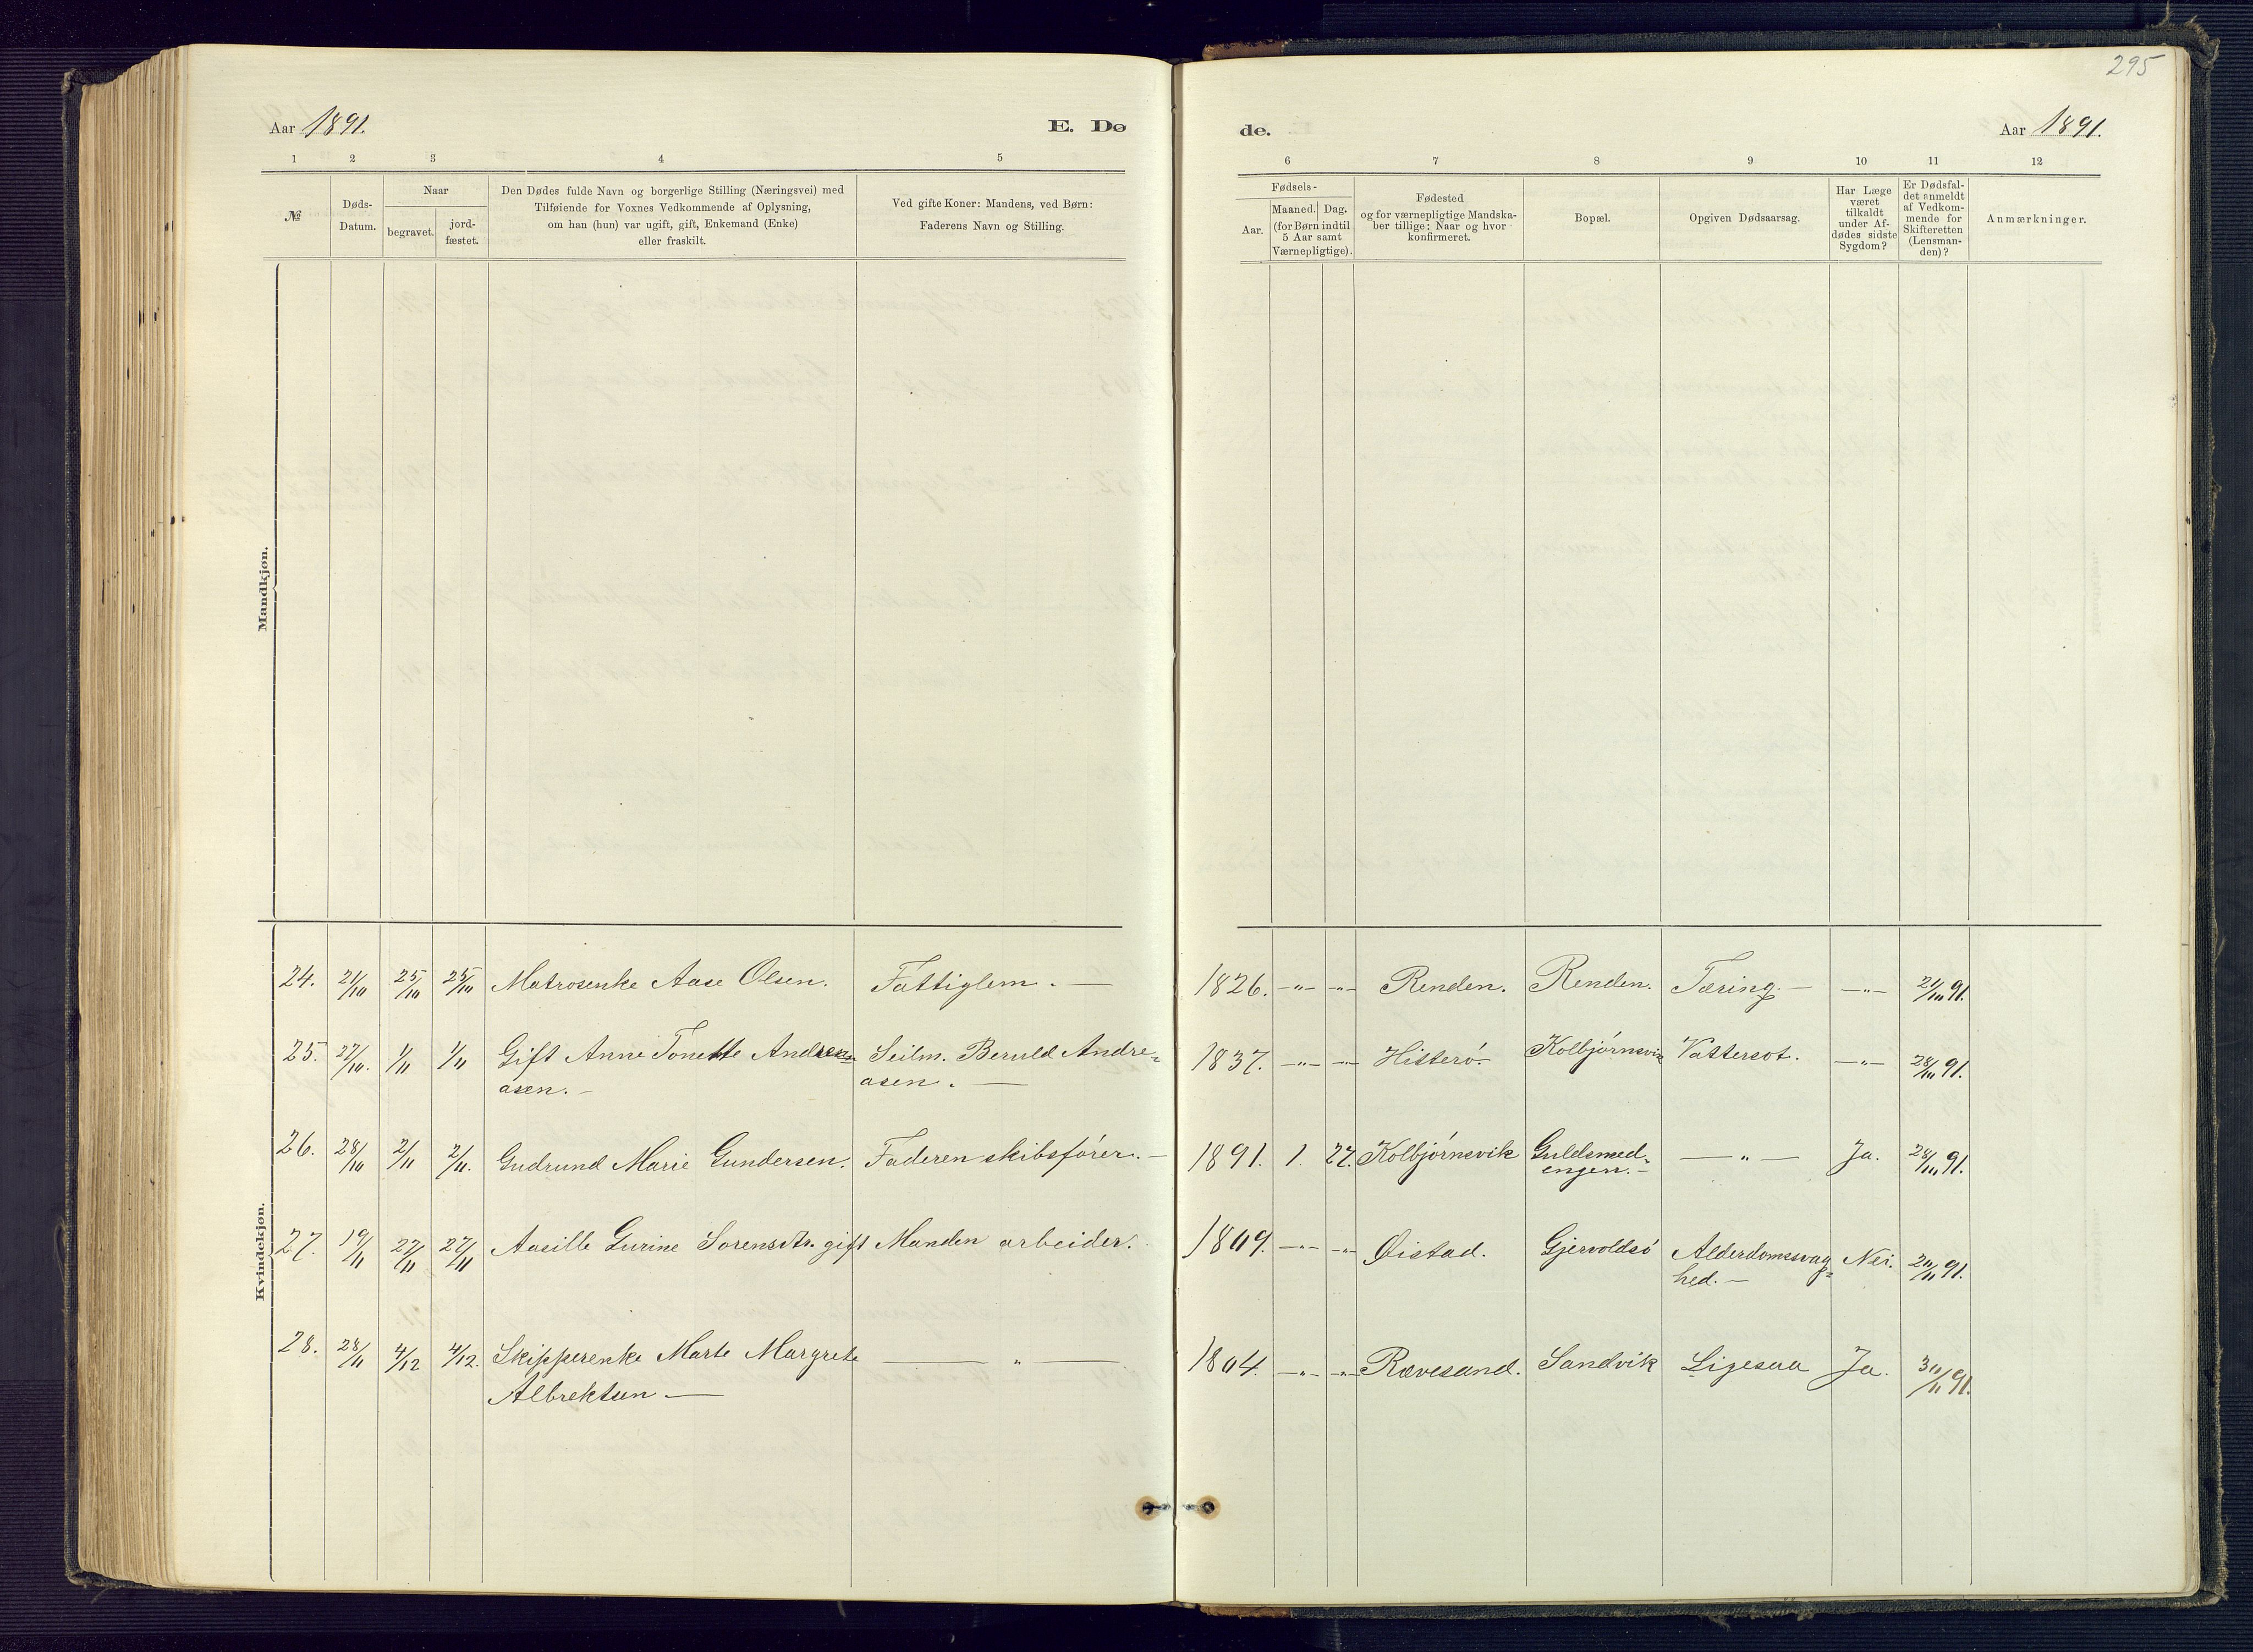 295
Aar 1891.
E. Dø
de.
Aar 1891.
1 2 3 4 5
6 7 8 9 10 11 12
№
Døds-
Datum.
Naar
begravet.
jord-
fæstet.
Den Dødes fulde Navn og borgerlige Stilling (Næringsvei) med
Tilføiende for Voxnes Vedkommende af Oplysning,
om han (hun) var ugift, gift, Enkemand (Enke)
eller fraskilt.
Ved gifte Koner: Mandens, ved Børn:
Faderens Navn og Stilling.
Fødsels-
Aar.
Maaned. Dag.
(for Børn indtil
5 Aar samt
Værnepligtige).
Fødested
og for værnepligtige Mandska-
ber tillige: Naar og hvor
konfirmeret.
Bopæl.
Opgiven Dødsaarsag.
Har Læge
været
tilkaldt
under Af-
dødes sidste
Sygdom?
Er Dødsfal-
det anmeldt
af Vedkom-
mende for
Skifteretten
(Lensman-
den)?
Anmærkninger.
Mandkjøn.
Kvindekjøn.
24. 21/10 25/10 25/10 Matrosenke Aase Olsen. Fattiglem. — 1826. —„— —„— Renden. Renden. Tæring. — —„— 21/10 91.
25. 27/10. 1/11 1/11 Gift Anne Tonette Andre= Seilm. Beruld Andre= 1837. —„— —„— Histerö. Kolbjörnsvik Vattersot. —„— 28/10 91.
asen. — asen. —
26. 28/10 2/11 2/11. Gudrund Marie Gundersen. Faderen skibsförer. — 1891. 1. 27. Kolbjörnsvik Guldsmed= — „ — Ja. 28/10 91.
engen. —
27. 19/11 27/11 27/11 Aasille Gurine Sorensdtr. gift Manden arbeider. 1809. —„— —„— Öistad. Gjervoldsö Alderdomssvag= Nei. 20/11 91.
hed. —
28. 28/11 4/12 4/12. Skipperenke Marte Margrete — „ — 1804. —„— —„— Rævesand. Sandvik Ligesaa Ja. 30/11 91.
Albrektsen —